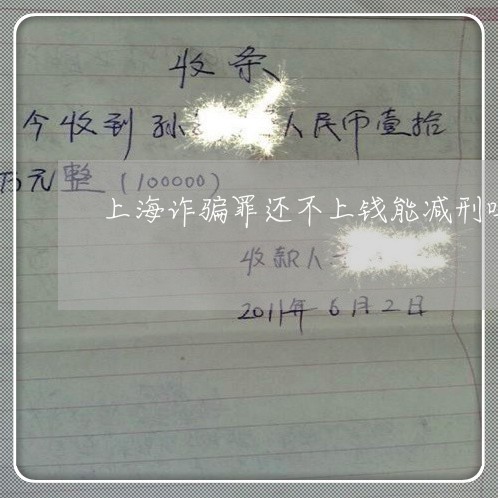 收条
今收到孙
人民币壹拾
万元整（100000）
上海诈骗罪还不上钱能减刑
收款人
2011年6月2日